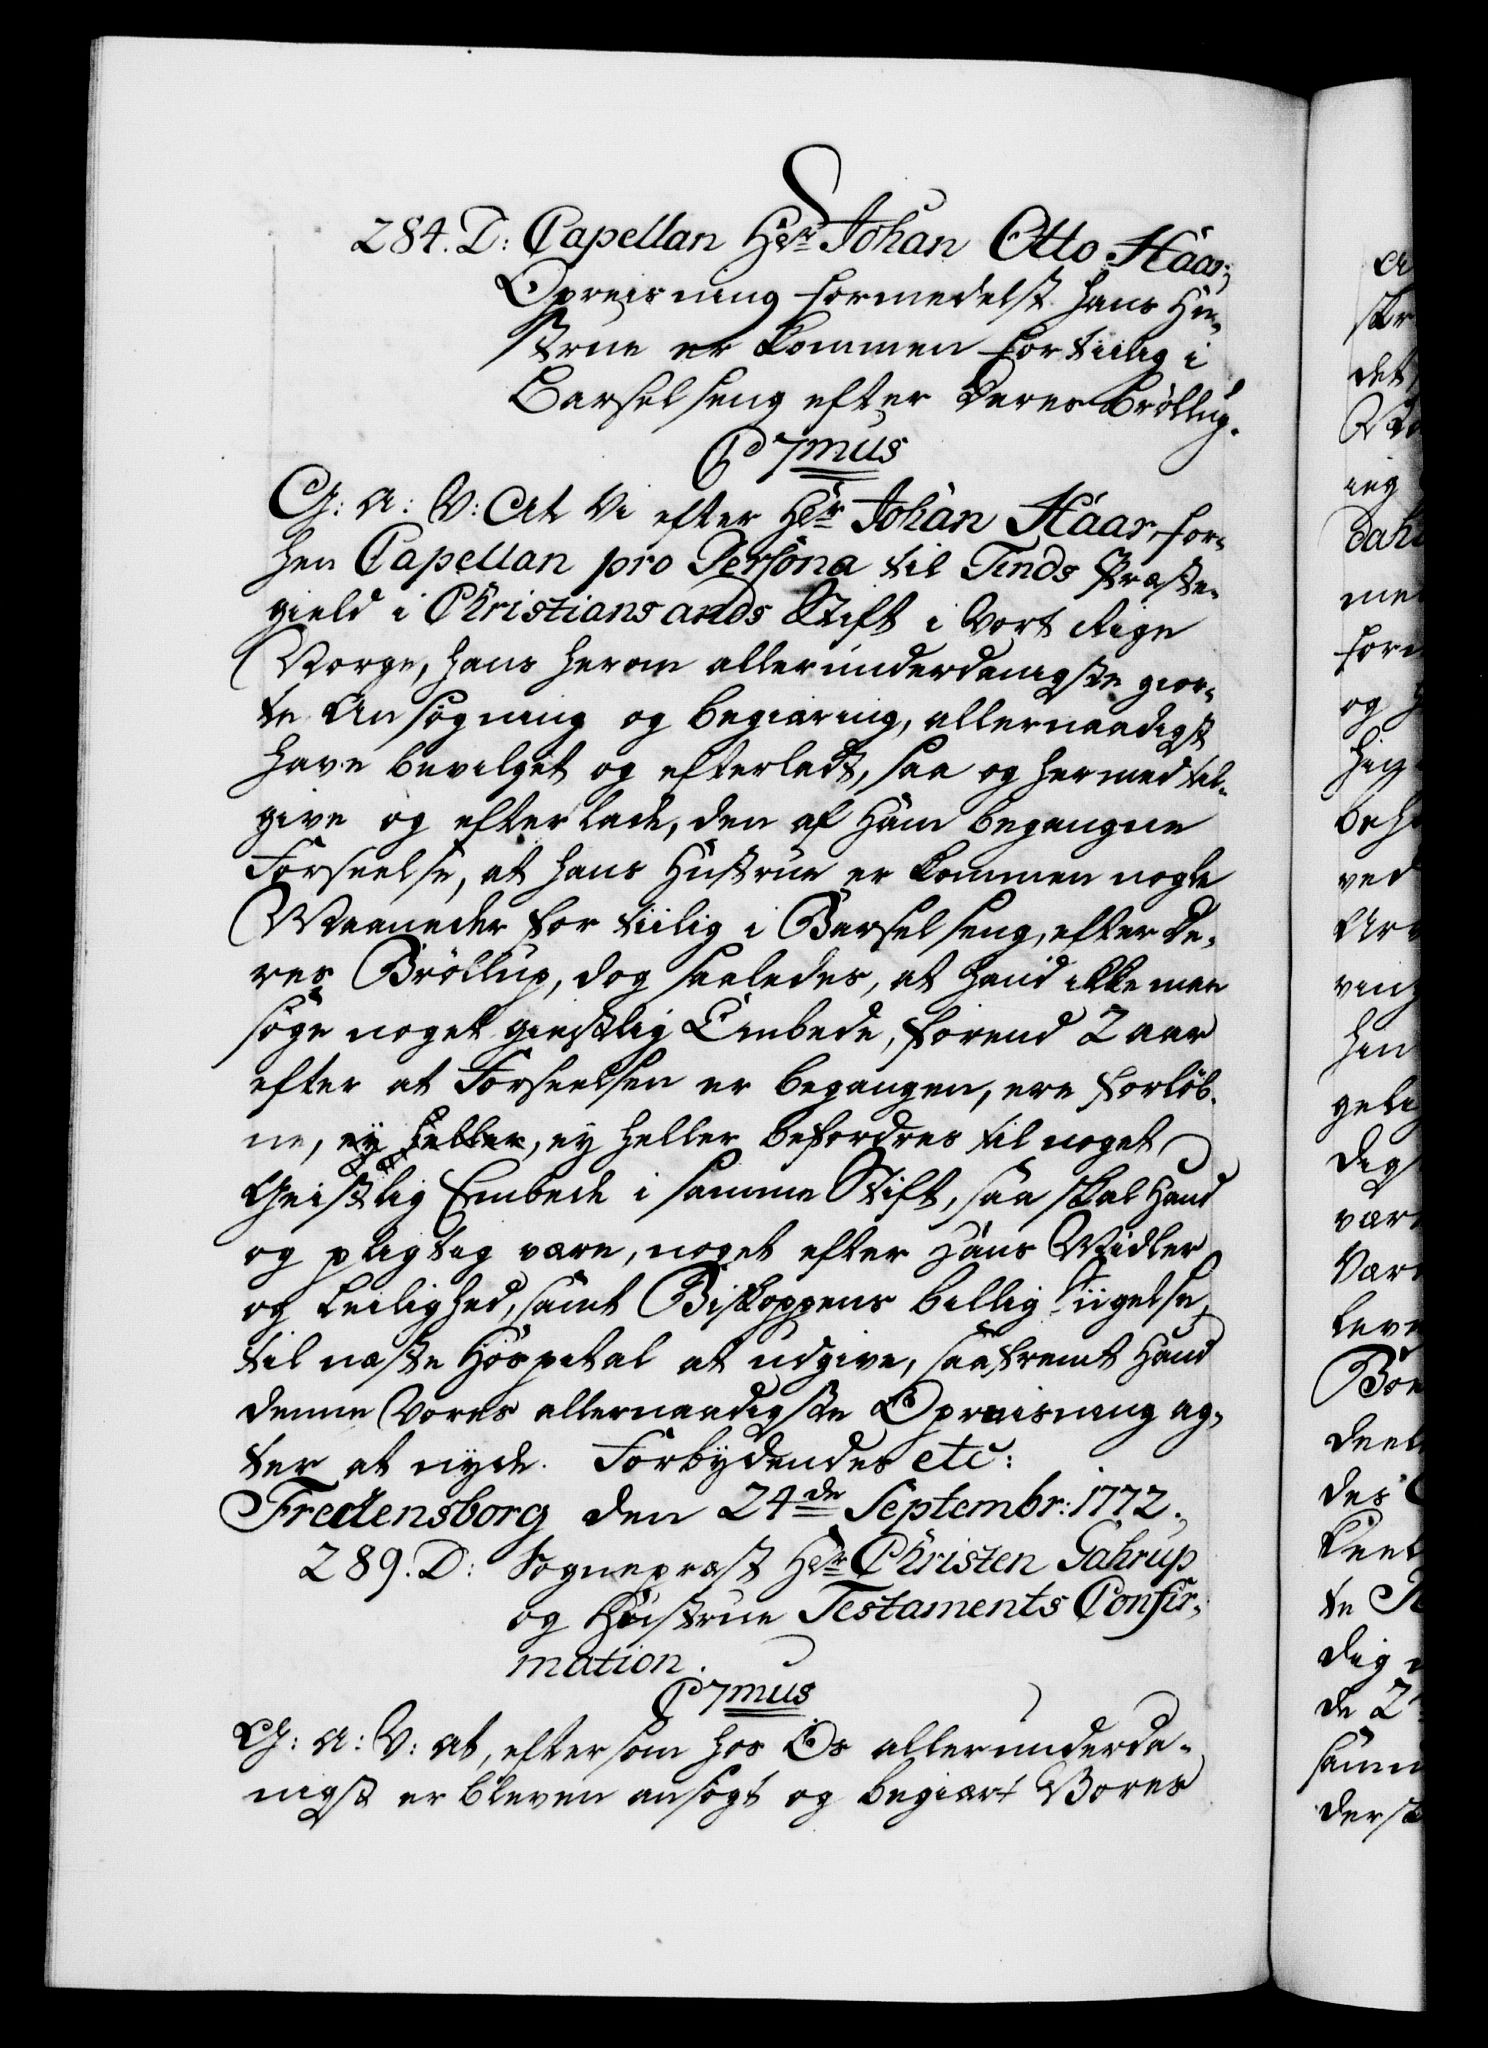 284. D: Capellan Hr. Johan Otto Haar,
Opreisning formedelst hans Hu-
strue er kommen for tiilig i
Barselseng efter deres Bröllup.
C 7mus
G: A: V: At Vi efter Hr. Johan Haar, for-
hen Capellan pro Persona til Tinds Præste-
gield i Christiansands Stift i Vort Rige
Norge, hans herom allerunderdanigste gior-
te Ansøgning og begiæring, allernaadigst
have bevilget og efterladt, saa og hermed til-
give og efterlade, den af Ham begangne
Forseelse, at hans Hustrue er kommen nogle
Maaneder for tiilig i Barselseng, efter de-
res Bröllup, dog saaledes, at hand ikke maa
søge noget geistlig Embede, forend 2 aar
efter at Forseelsen er begangen, ere forløb-
ne, ey heller, ey heller befordres til noget
Geistlig Embede i samme Stift, saa skal Hand
og pligtig være, noget efter Hans Midler
og Leilighed, samt Biskoppens billig Siigelse,
til næste Hospital at udgive, saafremt Hand
denne Vores allernaadigste Opreisning ag-
ter at nyde. Forbydendes etc:
Fredensborg den 24de Septembr: 1772.
289. D: Sognepræst Hr. Christen Gahrup
og Hustrue Testaments Confir-
mation.
C 7mus
G: A: V: At, eftersom hos Os allerunderda-
nigst er bleven ansøgt og begiært Vores